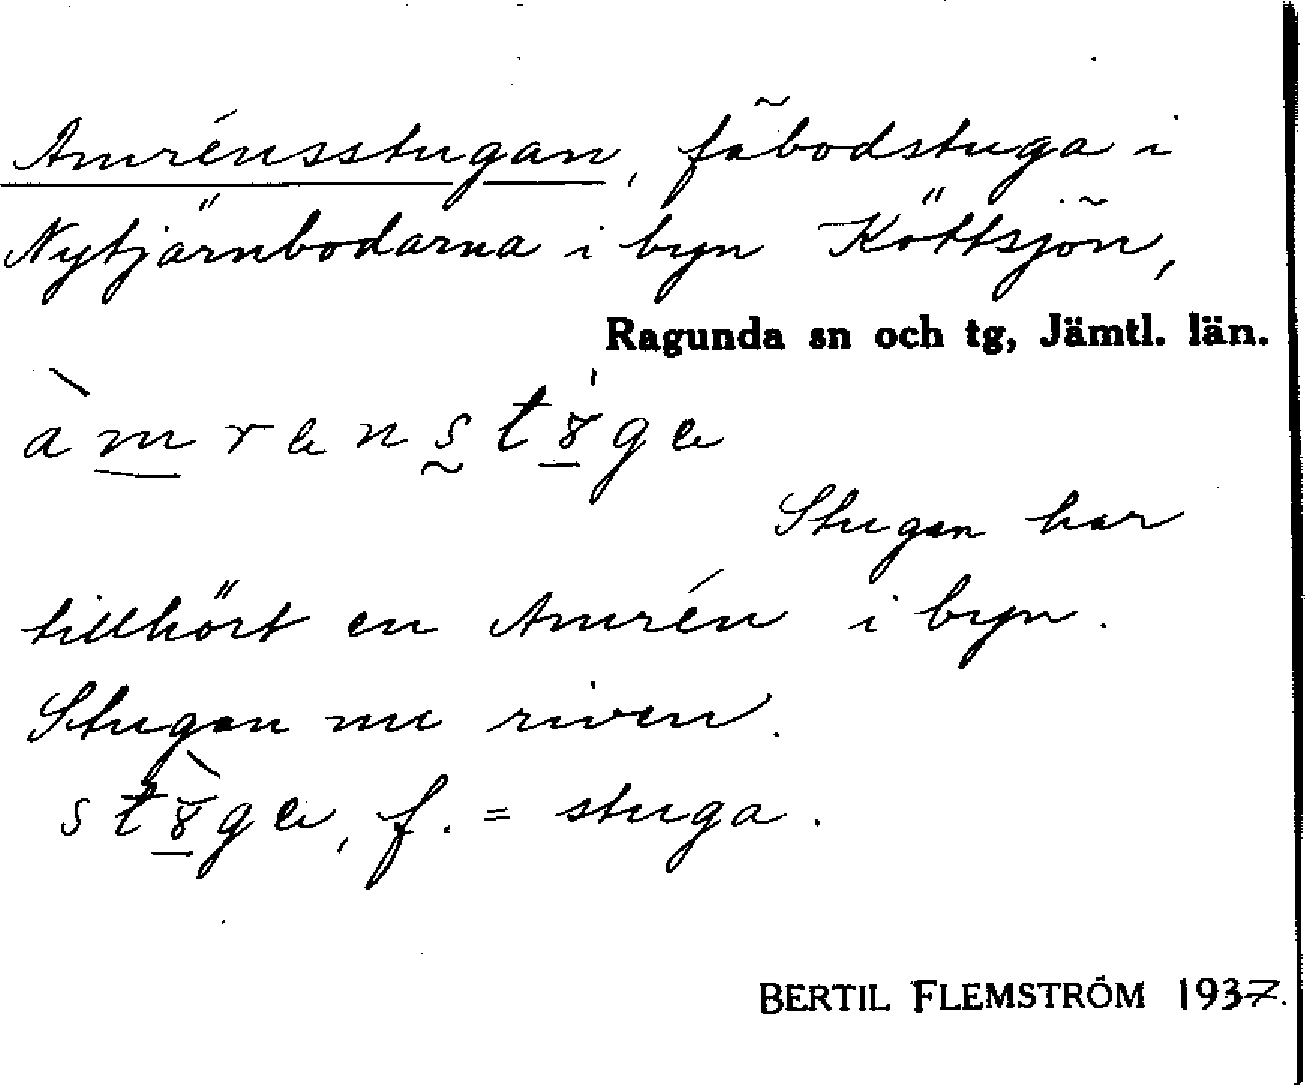 Amrénsstugan, fäbodstuga i
Nytjärnbodarna i byn Köttsjön,
Ragunda sn och tg, Jämtl. län.
Stugan har
tillhört en Amrén i byn.
Stugan nu riven.
f. = stuga.
BERTIL FLEMSTRÖM 1937.